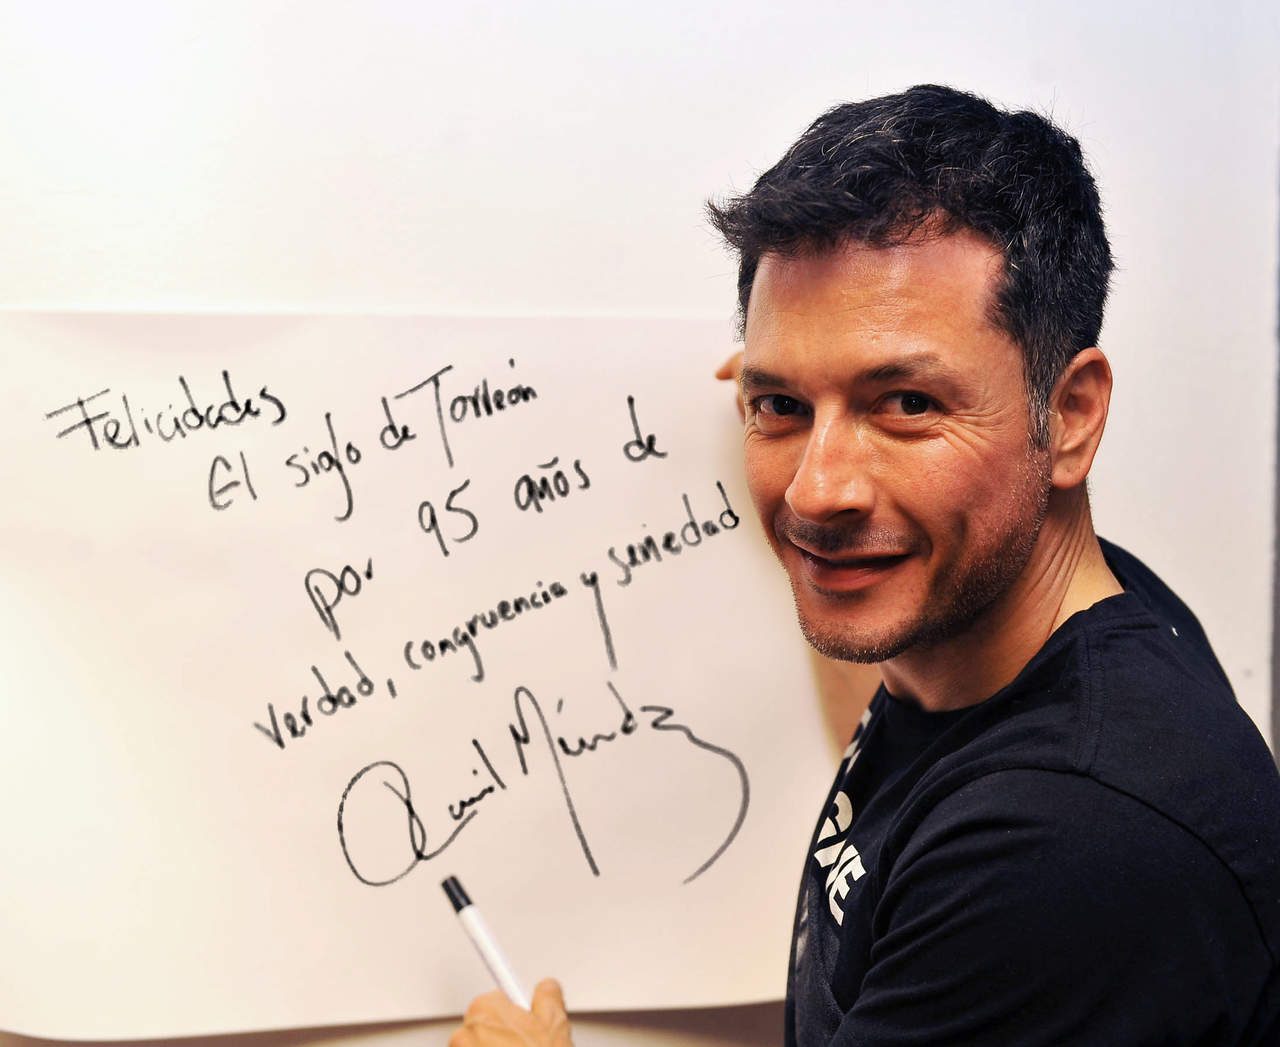 Felicidades
El siglo de Torreón
por 95 años de
verdad, congruencia y seriedad
Méndez